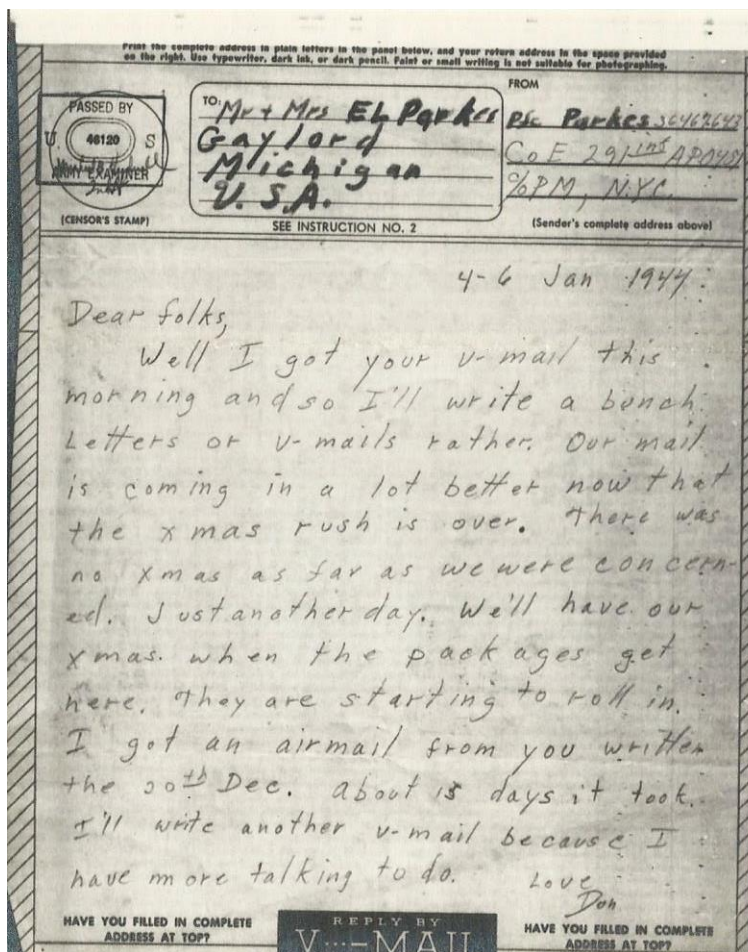 Print the complete address in plain letters in the panel below, and your return address in the space provided
on the right. Use typewriter, dark ink, or dark pencil. Faint or small writing is not suitable for photographing.
PASSED BY
U. 46120 S
ARMY EXAMINER
(CENSOR'S STAMP)
TO:
Mr + Mrs EL Parkes
Gaylord
Michigan
U.S.A.
SEE INSTRUCTION NO. 2
FROM
Pfc Parkes 36467643
Co E 291 inf APO 451
c/o PM, N.Y.C.
(Sender's complete address above)
4-6 Jan 1944
Dear folks,
Well I got your v-mail this
morning and so I'll write a bunch
Letters or v-mails rather. Our mail
is coming in a lot better now that
the xmas rush is over. There was
no xmas as far as we were concern-
ed. Just another day. We'll have our
xmas. when the packages get
here. They are starting to roll in.
I got an airmail from you written
the 20th Dec. About 15 days it took.
I'll write another v-mail because I
have more talking to do. Love
Don
HAVE YOU FILLED IN COMPLETE
ADDRESS AT TOP?
REPLY BY
V···—MAIL
HAVE YOU FILLED IN COMPLETE
ADDRESS AT TOP?